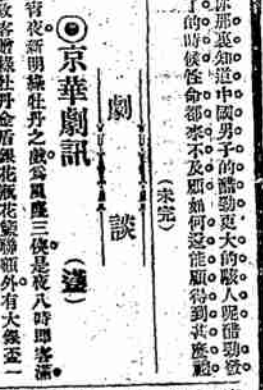 你那裏知道中國男子的醋勁更大的駭人呢醋勁發
了的時候性命都來不及顧如何還能顧得到甚麼禮
(未完)
劇談
◉京華劇訊
(選)
宵夜新明綠牡丹之戲爲風塵三俠是夜八時即客滿
致客贈綠牡丹金盾銀花瓶花籃聯額外有大銀盃一